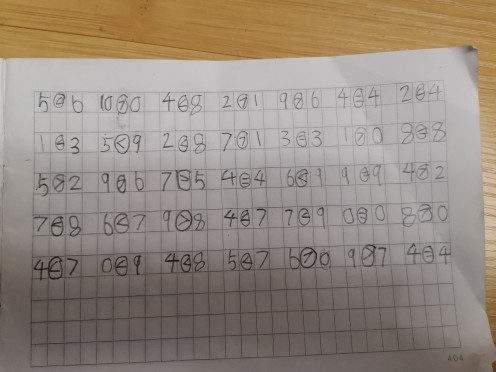 5<6 10>0 4<8 2>1 9>6 4=4 2<4
1<3 5<9 2<8 7>1 3=3 1>0 8=8
5>2 9>6 7>5 4=4 6<9 9=9 4>2
7<8 6<7 9>8 4<7 7<9 0=0 8>0
4<7 0<9 4<8 5<7 6>0 9>7 4=4
404